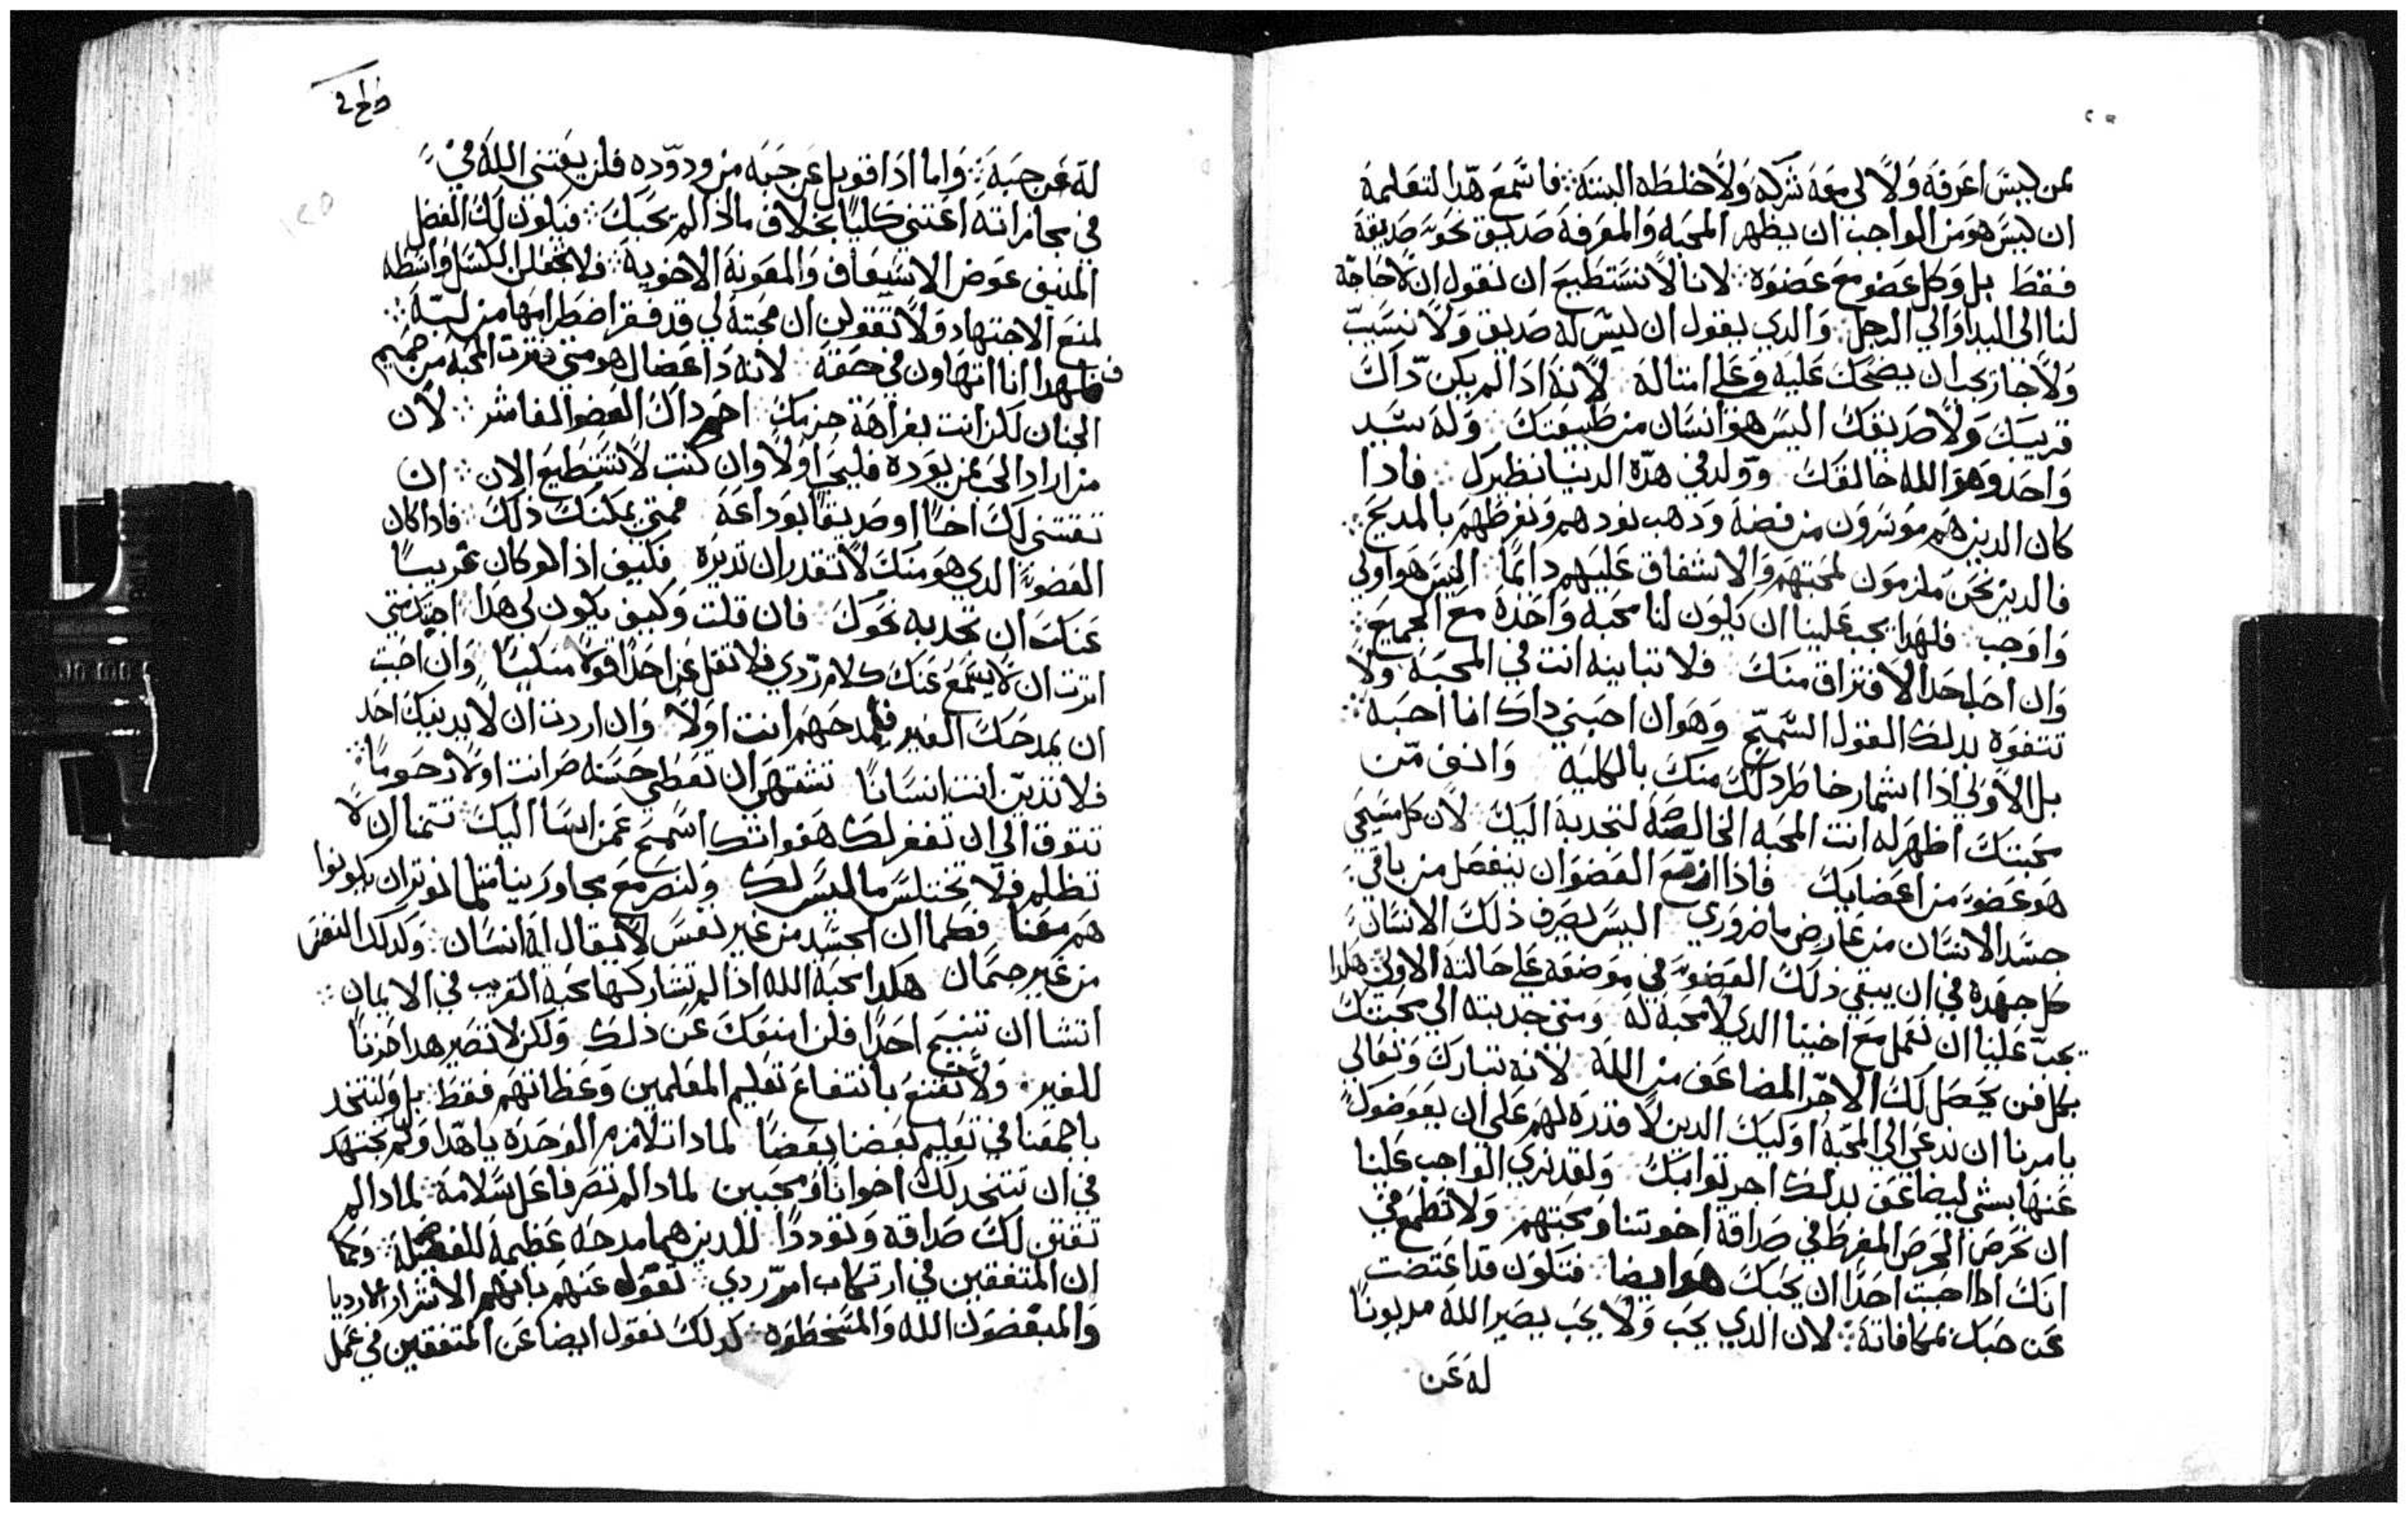 لمن ليس اعرفه ولا لي معه شركه ولا خلطه البتة ∴ فاسمع هدا لتعلمه
ان ليس هو من الواجب ان يظهر المحبه والمعرفة صديق نحو صديقه
فقط بل وكل عضو مع عضوه ∴ لاننا لا نستطيع ان نقول ان لا حاجة
لنا الى اليد او الي الرجل ∴ والدي يقول ان ليس له صديق ولا نسيب
ولا جار يجب ان يضحك عليه وعلي امتاله لانه ادا لم يكن داك
قريبك ولا صديقك اليس هو انسان من طبيعتك وله سيد
واحد وهو الله خالقك وولد في هده الدنيا نظيرك فادا
كان الدين هم موسرون من فضه ودهب نودهم ونقرظهم بالمديح ∴
فالدين نحن ملزمون لمحبتهم والاشفاق عليهم دايمًا اليس هو اولي
واوجب ∴ فلهدا يجب علينا ان يكون لنا محبه واحدة مع الجميع ∴
وان احب احد الافتراق منك فلا تباينه انت في المحبة ولا
تتفوه بدلك القول السمج وهو ان احبني داك انا احبه ∴
بل الاولي ادا اشمار خاطر دلك منك بالكليه وانف من
محبتك اظهر له انت المحبه الخالصة لتجدبه اليك لان كل مسيحي
هو عضو من اعضايك فادا ازمع العضو ان ينفصل من باقي
جسد الانسان من عارض ما ضروري اليس يصرف ذلك الانسان
كل جهده في ان يبقي ذلك العضو في موضعه علي حالته الاولي هكدا
يجب علينا ان نعمل مع اخينا الدي لا محبة له ومتي جدبته الي محبتك
بكل فن يحصل لك الاجر المضاعف من الله لانه تبارك وتعالي
يامرنا ان ندعي الي المحبة اوليك الدين لا قدره لهم علي ان يعوضوك
عنها بشي ليضاعف بدلك اجر توابك ولقد نري الواجب علينا
ان نحرص الحرص المفرط في صداقة اخوتنا ومحبتهم ولا تطمع في
انك ادا احببت احدًا ان يحبك هو ايضا فتكون قد اعتضت
عن حبك بمكافاته ∴ لان الدي يحب ولا يحب يصير الله مديونا
له عن
له عن حبه ∴ واما ادا قوبل عن حبه من ودوده فلن يعتني الله في
في مجازاته اعتني كليا بخلاف ما اذا لم يحبك ∴ فيكون لك الفضل
المنيف عوض الاسعاف والمعونة الاخوية ∴ فلا تجعلن الكسل واسطه
لمنع الاجتهاد ولا تقولن ان محبته لي قد فتر اضطرامها من لبه ∴
فلهدا انا اتهاون في حقه لانه دا عضال هو متي فترت المحبة من صميم
الجنان لكن انت بفراهة حزمك احم داك العضو الفاتر ∴ لان
من اراد الحب ممن يوده فليحب اولا وان كنت لا تستطيع الان ∴ ان
تقتني لك اخًا او صديقًا بوداعة فمتي يمكنك ذلك فادا كان
العضو الدي هو منك لا تقدر ان تديره فكيف اذا لو كان غريبًا
عنك ان تجدبه نحوك فان قلت وكيف يكون لي هدا اجبتك متي
اترت ان لا يسمع عنك كلام ردي فلا تقل عن احد قولا منكيا وان احببت
ان يمدحك الغير فلتمدحهم انت اولا وان اردت ان لا يدينك احد
فلا تدين انت انسانا تشتهي ان تعطي حسنه صر انت اولا رحوما ∴
تتوق الي ان تغفر لك هفواتك اسمح عمن اسا اليك تتمنا ان لا
تظلم فلا تختلس ما ليس لك ولنصر مع مجاورينا متلما نوتر ان يكونوا
هم معنا فكما ان الجسد من غير نفس لا يقال له انسان ∴ وكدلك النفس
من غير جتمان هكدا محبة الله اذا لم تشاركها محبة القريب في الايمان ∴
اتشا ان تنيح احدًا فلن امنعك عن ذلك ولكن لا تصير هدا حزنا
للغير ∴ ولا تقتنع بانتفاع تعليم المعلمين وعظاتهم فقط ∴ بل ولنتحد
باجمعنا في تعليم بعضنا بعضًا لمادا تلازم الوحدة يا هدا ولم تجتهد
في ان تتخد لك اخوانًا ومحبين لمادا لم تصر فاعل سلامة ∴ لمادا لم
تقتن لك صداقه وتوددا الدين هما مدحه عظيمة للفضيلة ∴ وكما
ان المتفقين في ارتكاب امر ردي ∴ تقول عنهم بانهم الاشرار الاردياء
والمبغضون الله والمسخطوه ∴ كدلك نقول ايضا عن المتفقين في عمل